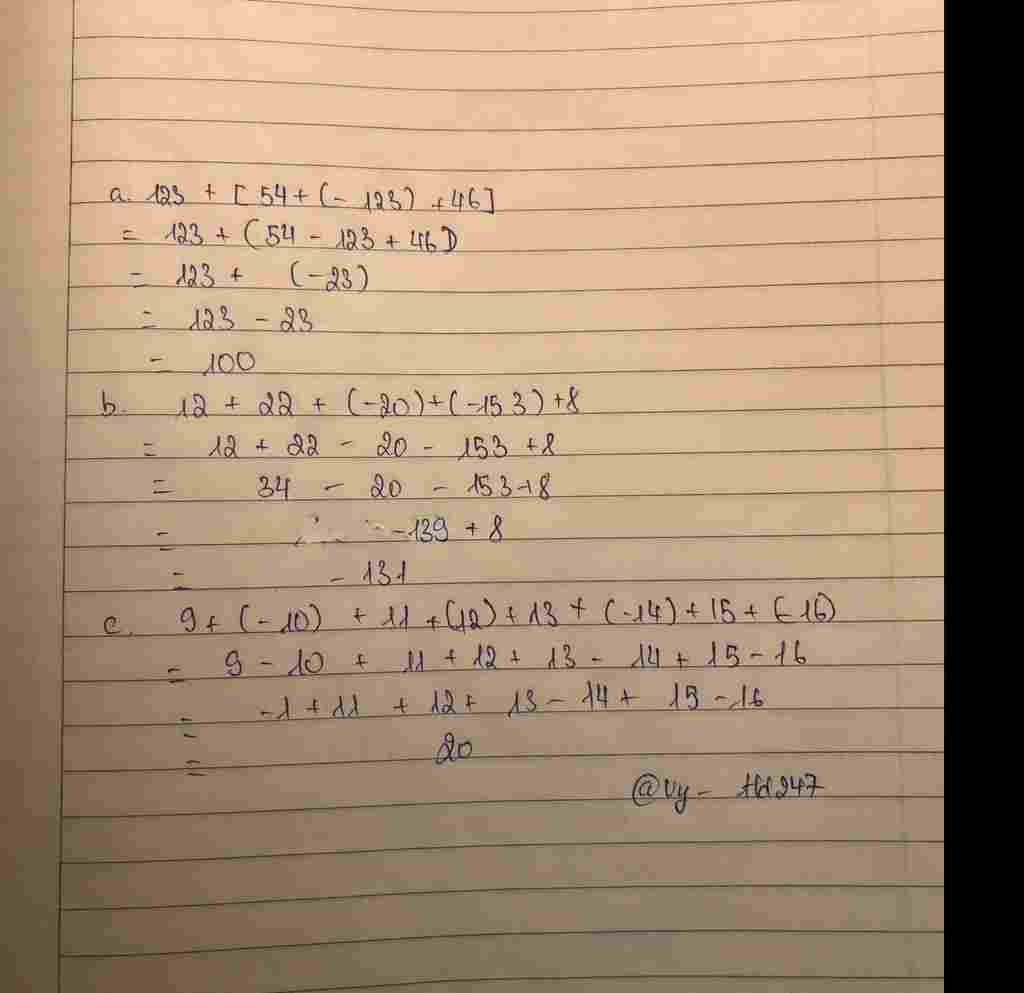 a. 123 + [ 54 + (- 123) + 46]
= 123 + (54 - 123 + 46)
= 123 + (-23)
= 123 - 23
= 100
b. 12 + 22 + (-20) + (-153) + 8
= 12 + 22 - 20 - 153 + 8
= 34 - 20 - 153 + 8
= -139 + 8
= - 131
c. 9 + (- 10) + 11 + (12) + 13 + (-14) + 15 + (-16)
= 9 - 10 + 11 + 12 + 13 - 14 + 15 - 16
= -1 + 11 + 12 + 13 - 14 + 15 - 16
= 20
@Vy-